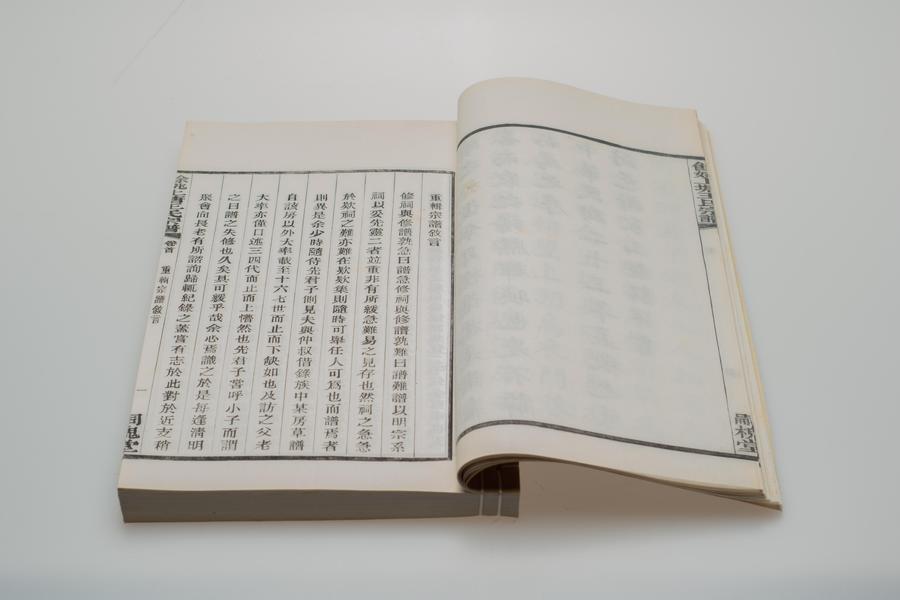 重輯宗譜敘言
修祠與修譜孰急曰譜急修祠與修譜孰難曰譜難譜以明宗系
祠以妥先靈二者並重非有所緩急難易之見存也然祠之急急
於歟祠之難亦難在歟歟集則隨時可舉任人可為也而譜焉者
則異是余少時隨侍先君子側見夫與仲叔借錄族中某房草譜
自該房以外大率載至十六七世而止而下缺如也及訪之父老
大率亦僅口述三四代而止而上懵然也先君子嘗呼小子而謂
之曰譜之失修也久矣其可緩乎哉余心焉識之於是每逢清明
聚會向長老有所諮詢歸輒紀錄之蓋嘗有志於此對於近支稍
卷首
重輯宗譜敘言
一